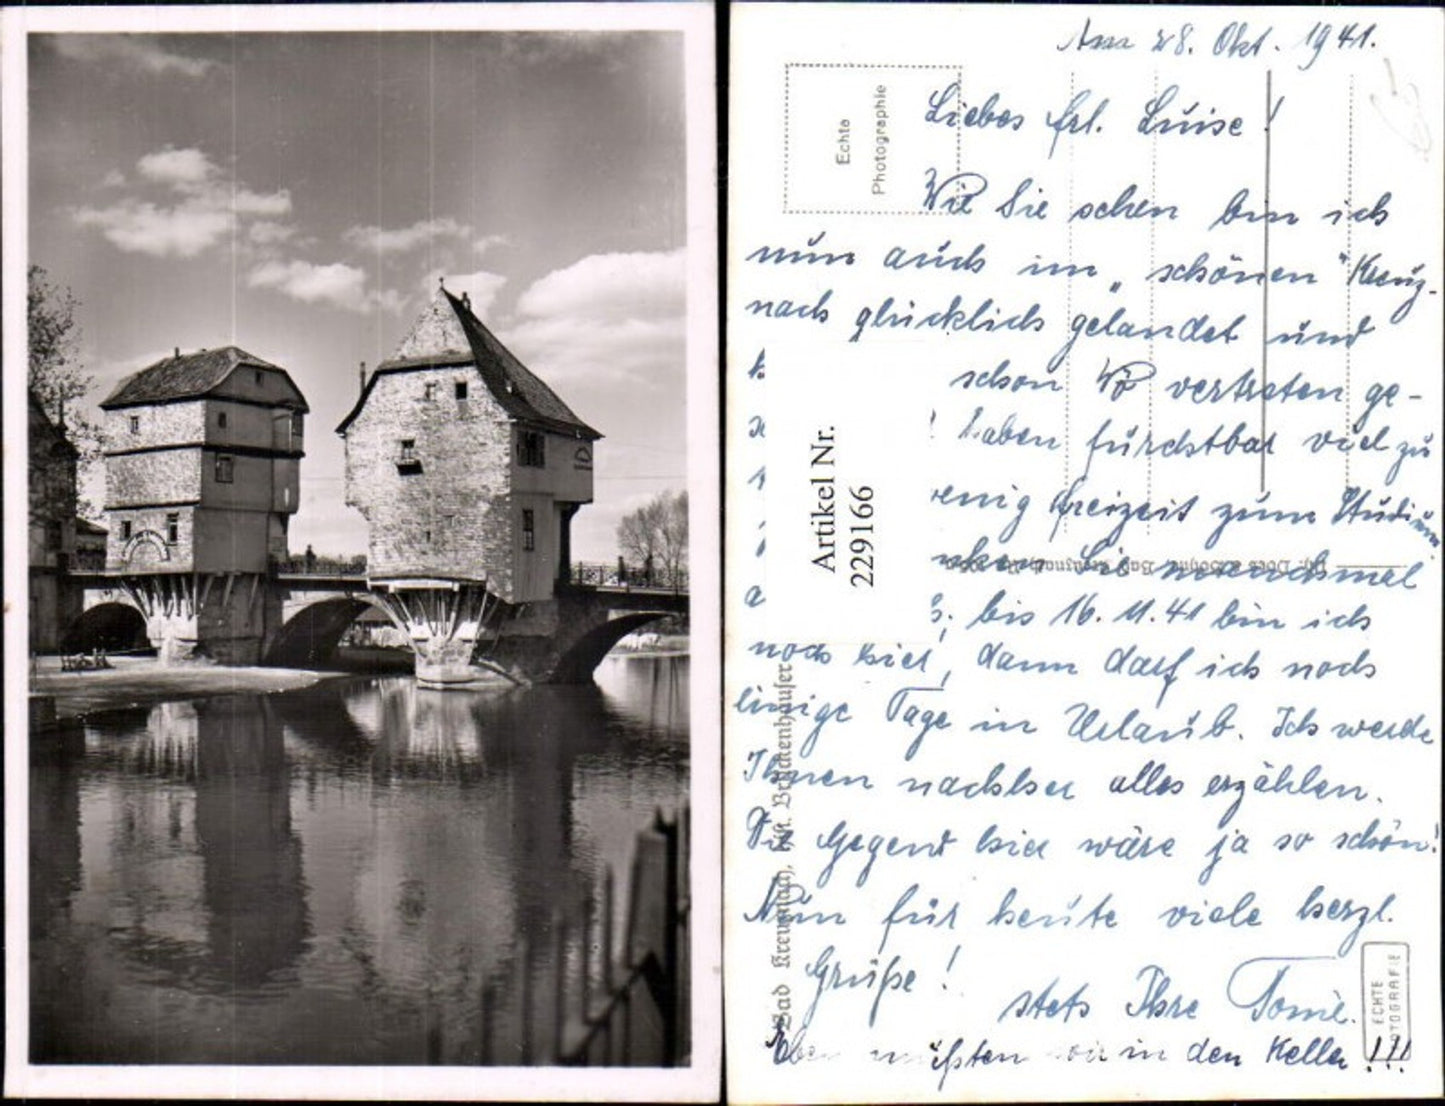 Am 28. Okt. 1941.
Echte
Photographie
Liebes Frl. Luise!
Wie Sie sehen bin ich
nun auch im „schönen" Kreuz-
nach glücklich gelandet und
schon vertreten ge-
haben furchtbar viel zu
wenig Freizeit zum Studium
manchmal
bis 16.11.41 bin ich
noch hier, dann darf ich noch
einige Tage in Urlaub. Ich werde
Ihnen nachher alles erzählen.
Die Gegend hier wäre ja so schön!
Nun für heute viele herzl.
Grüße!
stets Ihre Tomie.
Eben mußten wir in den Keller!!!
Artikel Nr.
229166
Bad Kreuznach, Hist. Brückenhäuser
ECHTE
FOTOGRAFIE